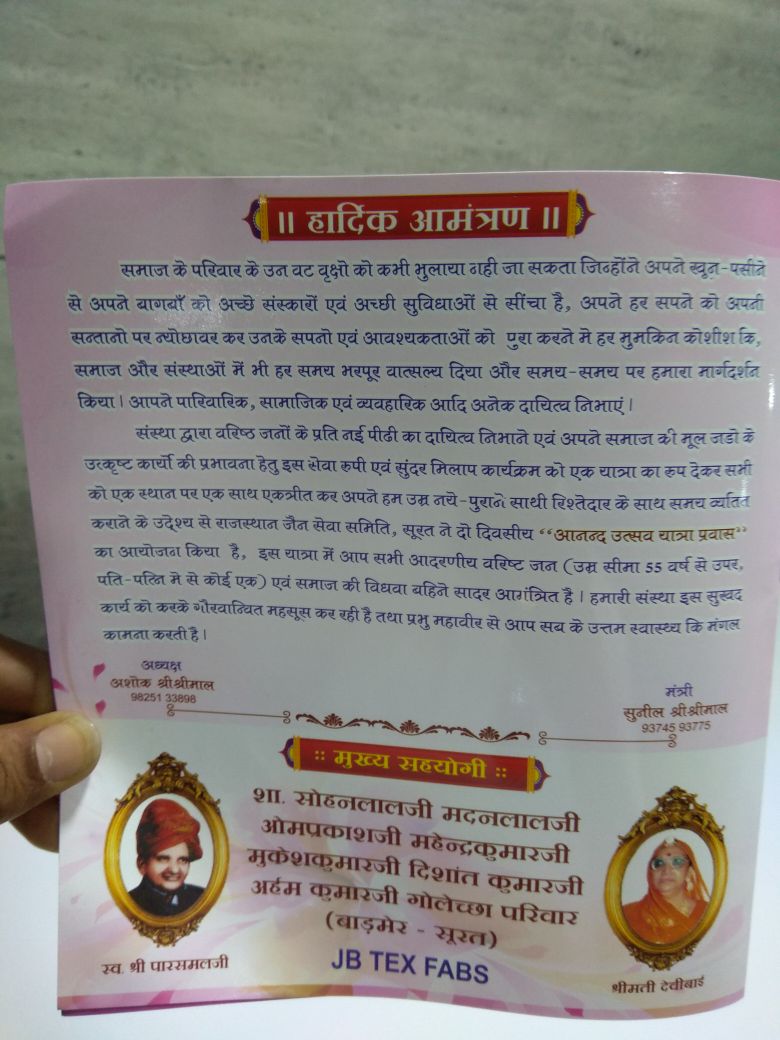 || हार्दिक आमंत्रण ||
समाज के परिवार के उन वट वृक्षो को कभी भुलाया नही जा सकता जिन्होंने अपने खून-पसीने
से अपने बागबाँ को अच्छे संस्कारों एवं अच्छी सुविधाओं से सींचा है, अपने हर सपने को अपनी
सन्तानो पर न्योछावर कर उनके सपनो एवं आवश्यकताओं को पुरा करने मे हर मुमकिन कोशीश कि,
समाज और संस्थाओं में भी हर समय भरपूर वात्सल्य दिया और समय-समय पर हमारा मार्गदर्शन
किया। आपने पारिवारिक, सामाजिक एवं व्यवहारिक आदि अनेक दायित्व निभाएं।
संस्था द्वारा वरिष्ठ जनों के प्रति नई पीढी का दायित्व निभाने एवं अपने समाज की मूल जडो के
उत्कृष्ट कार्यो की प्रभावना हेतु इस सेवा रुपी एवं सुंदर मिलाप कार्यक्रम को एक यात्रा का रुप देकर सभी
को एक स्थान पर एक साथ एकत्रीत कर अपने हम उम्र नये-पुराने साथी रिश्तेदार के साथ समय व्यतित
कराने के उद्देश्य से राजस्थान जैन सेवा समिति, सूरत ने दो दिवसीय “आनन्द उत्सव यात्रा प्रवास”
का आयोजन किया है, इस यात्रा में आप सभी आदरणीय वरिष्ट जन (उम्र सीमा 55 वर्ष से उपर,
पति-पत्नि मे से कोई एक) एवं समाज की विधवा बहिने सादर आमंत्रित है। हमारी संस्था इस सुखद
कार्य को करके गौरवान्वित महसूस कर रही है तथा प्रभु महावीर से आप सब के उत्तम स्वास्थ्य कि मंगल
कामना करती है।
अध्यक्ष
अशोक श्रीश्रीमाल
98251 33898
मंत्री
सुनील श्रीश्रीमाल
93745 93775
:: मुख्य सहयोगी ::
शा. सोहनलालजी मदनलालजी
ओमप्रकाशजी महेन्द्रकुमारजी
मुकेशकुमारजी दिशांत कुमारजी
अर्हम कुमारजी गोलेच्छा परिवार
(बाड़मेर - सूरत)
JB TEX FABS
स्व. श्री पारसमलजी
श्रीमती देवीबाई